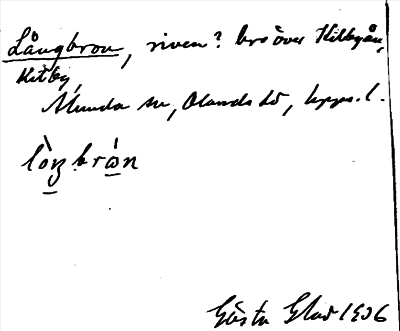 Långbron, riven? bro över Kilbyån,
Kilby,
Alunda sn, Olands hd, Upps. l.
lòŋbrón
Gösta Glad 1936